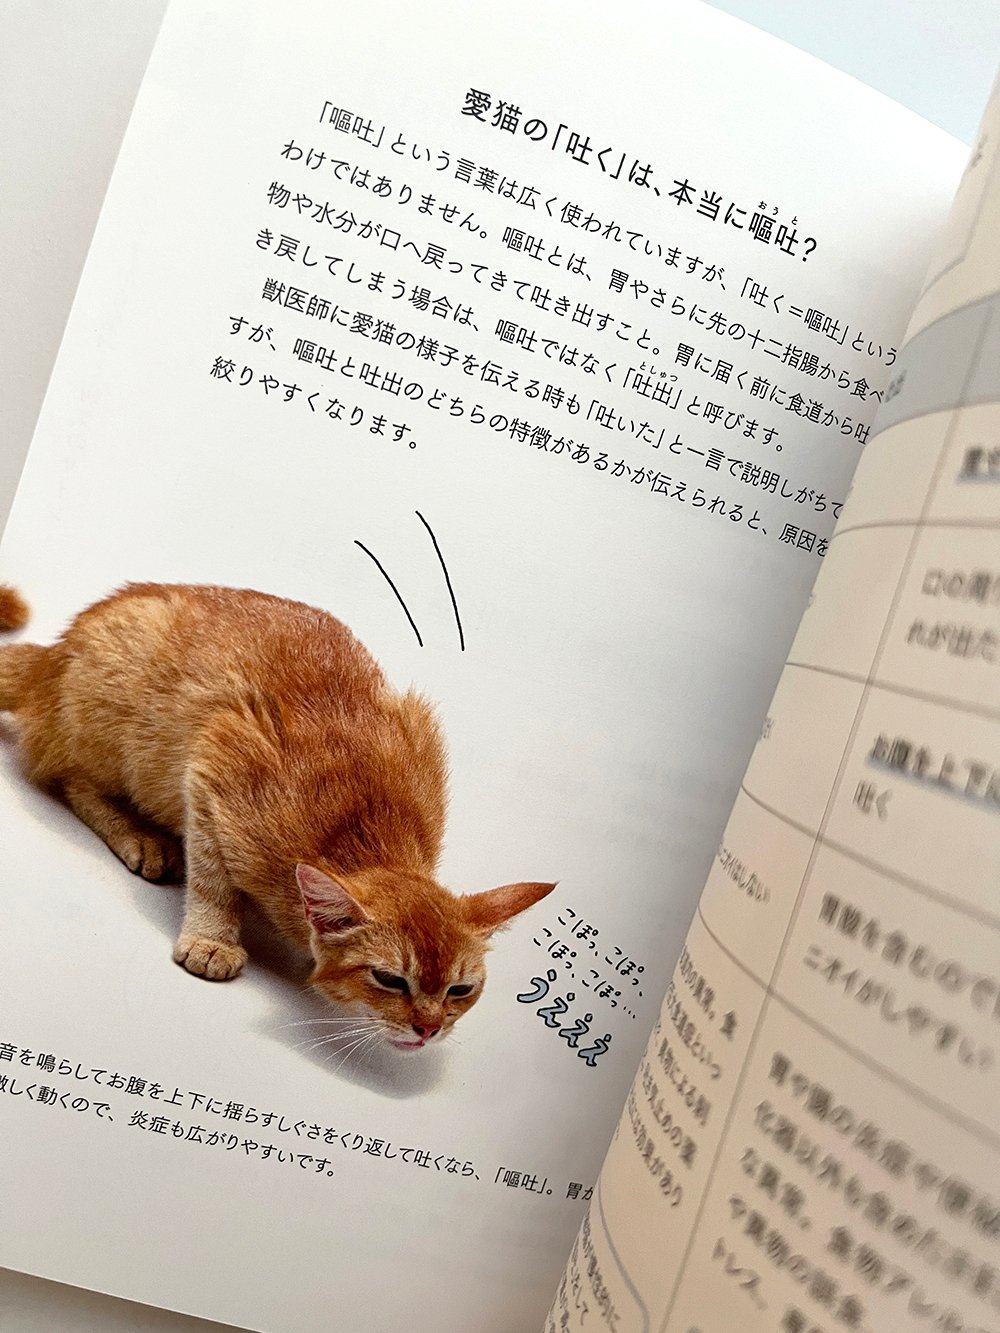 愛猫の「吐く」は、本当に嘔吐?
おうと
「嘔吐」という言葉は広く使われていますが、「吐く=嘔吐」という
わけではありません。嘔吐とは、胃やさらに先の十二指腸から食べ
物や水分が口へ戻ってきて吐き出すこと。胃に届く前に食道から吐
き戻してしまう場合は、嘔吐ではなく「吐出」と呼びます。
としゅつ
獣医師に愛猫の様子を伝える時も「吐いた」と一言で説明しがちで
すが、嘔吐と吐出のどちらの特徴があるかが伝えられると、原因を
絞りやすくなります。
こぽっ、こぽっ、
こぽっ、こぽっ…
うえええ
音を鳴らしてお腹を上下に揺らすしぐさをくり返して吐くなら、「嘔吐」。胃が
激しく動くので、炎症も広がりやすいです。
口の周
れが出た
お腹を上下に
吐く
胃酸を含むので
ニオイがしやすい
ニオイはしない
胃や腸の炎症や
化器以外も含めたさま
な異常。食物アレル
や異物の誤食
トレス、